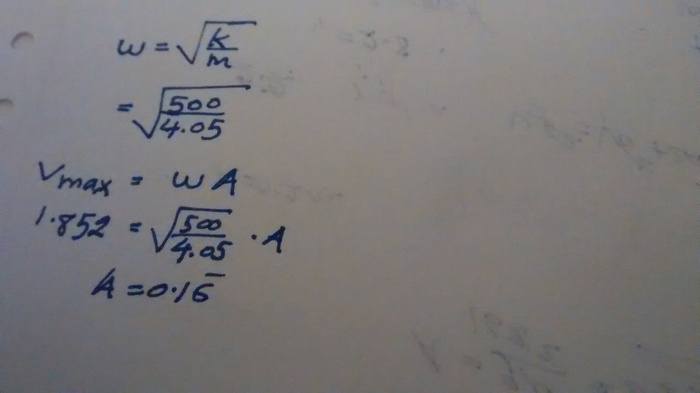 w = √K/m
= √500/4.05
Vmax = wA
1.852 = √500/4.05 . A
A = 0.16